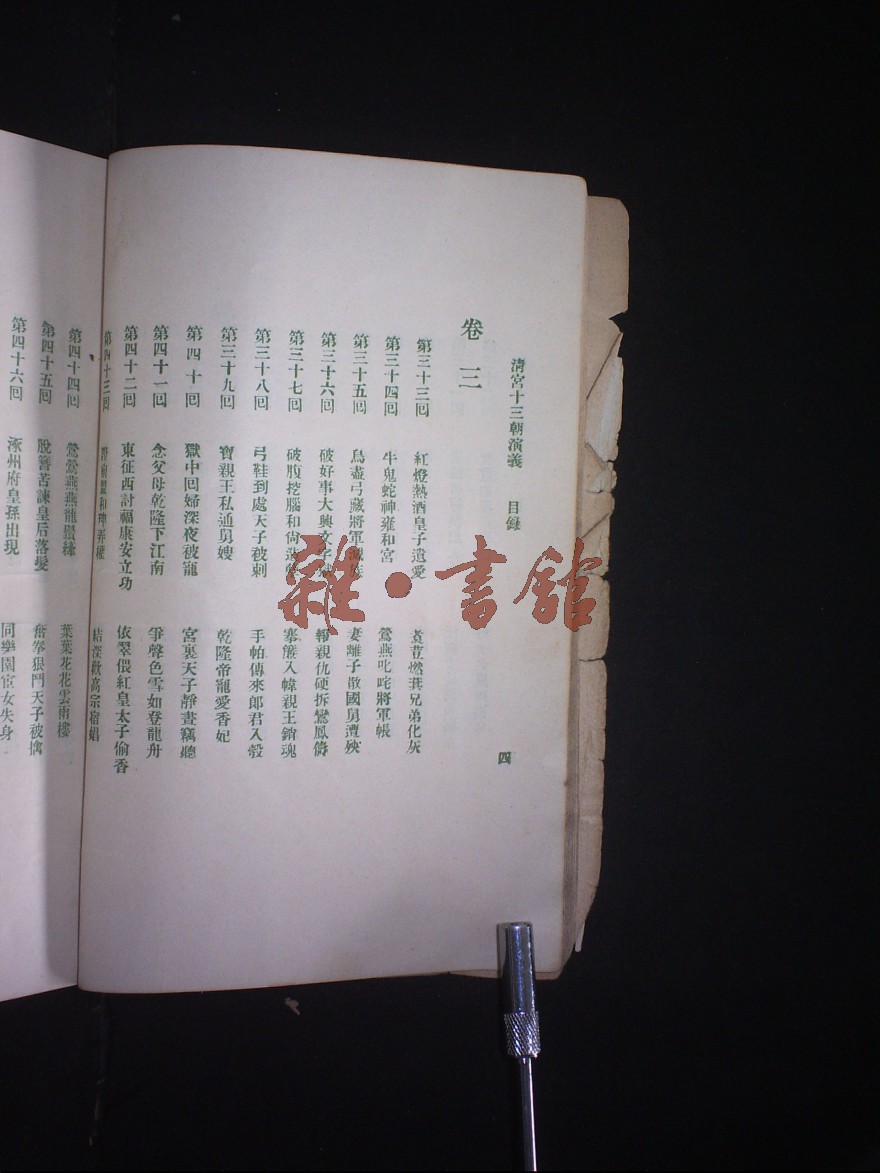 清宮十三朝演義 目錄
四
卷三
第三十三回 紅燈熱酒皇子遺愛 煮荳燃萁兄弟化灰
第三十四回 牛鬼蛇神雍和宮 鶯燕叱咤將軍帳
第三十五回 鳥盡弓藏將軍滅族 妻離子散國舅遭殃
第三十六回 破好事大興文字獄 報親仇硬拆鸞鳳儔
第三十七回 破腹挖腦和尚造孽 搴帷入幃親王銷魂
第三十八回 弓鞋到處天子被刺 手帕傳來郎君入彀
第三十九回 寶親王私通舅嫂 乾隆帝寵愛香妃
第四十回 獄中回婦深夜被寵 宮裏天子靜晝竊聽
第四十一回 念父母乾隆下江南 爭聲色雪如登龍舟
第四十二回 東征西討福康安立功 依翠偎紅皇太子偷香
第四十三回 和珅弄權 結深歡高宗宿娼
第四十四回 鶯鶯燕燕龍蟠絲 葉葉花花雲雨樓
第四十五回 脫簪苦諫皇后落髮 奮拳狠鬥天子被擒
第四十六回 涿州府皇孫出現 同樂園宮女失身
雜·書館